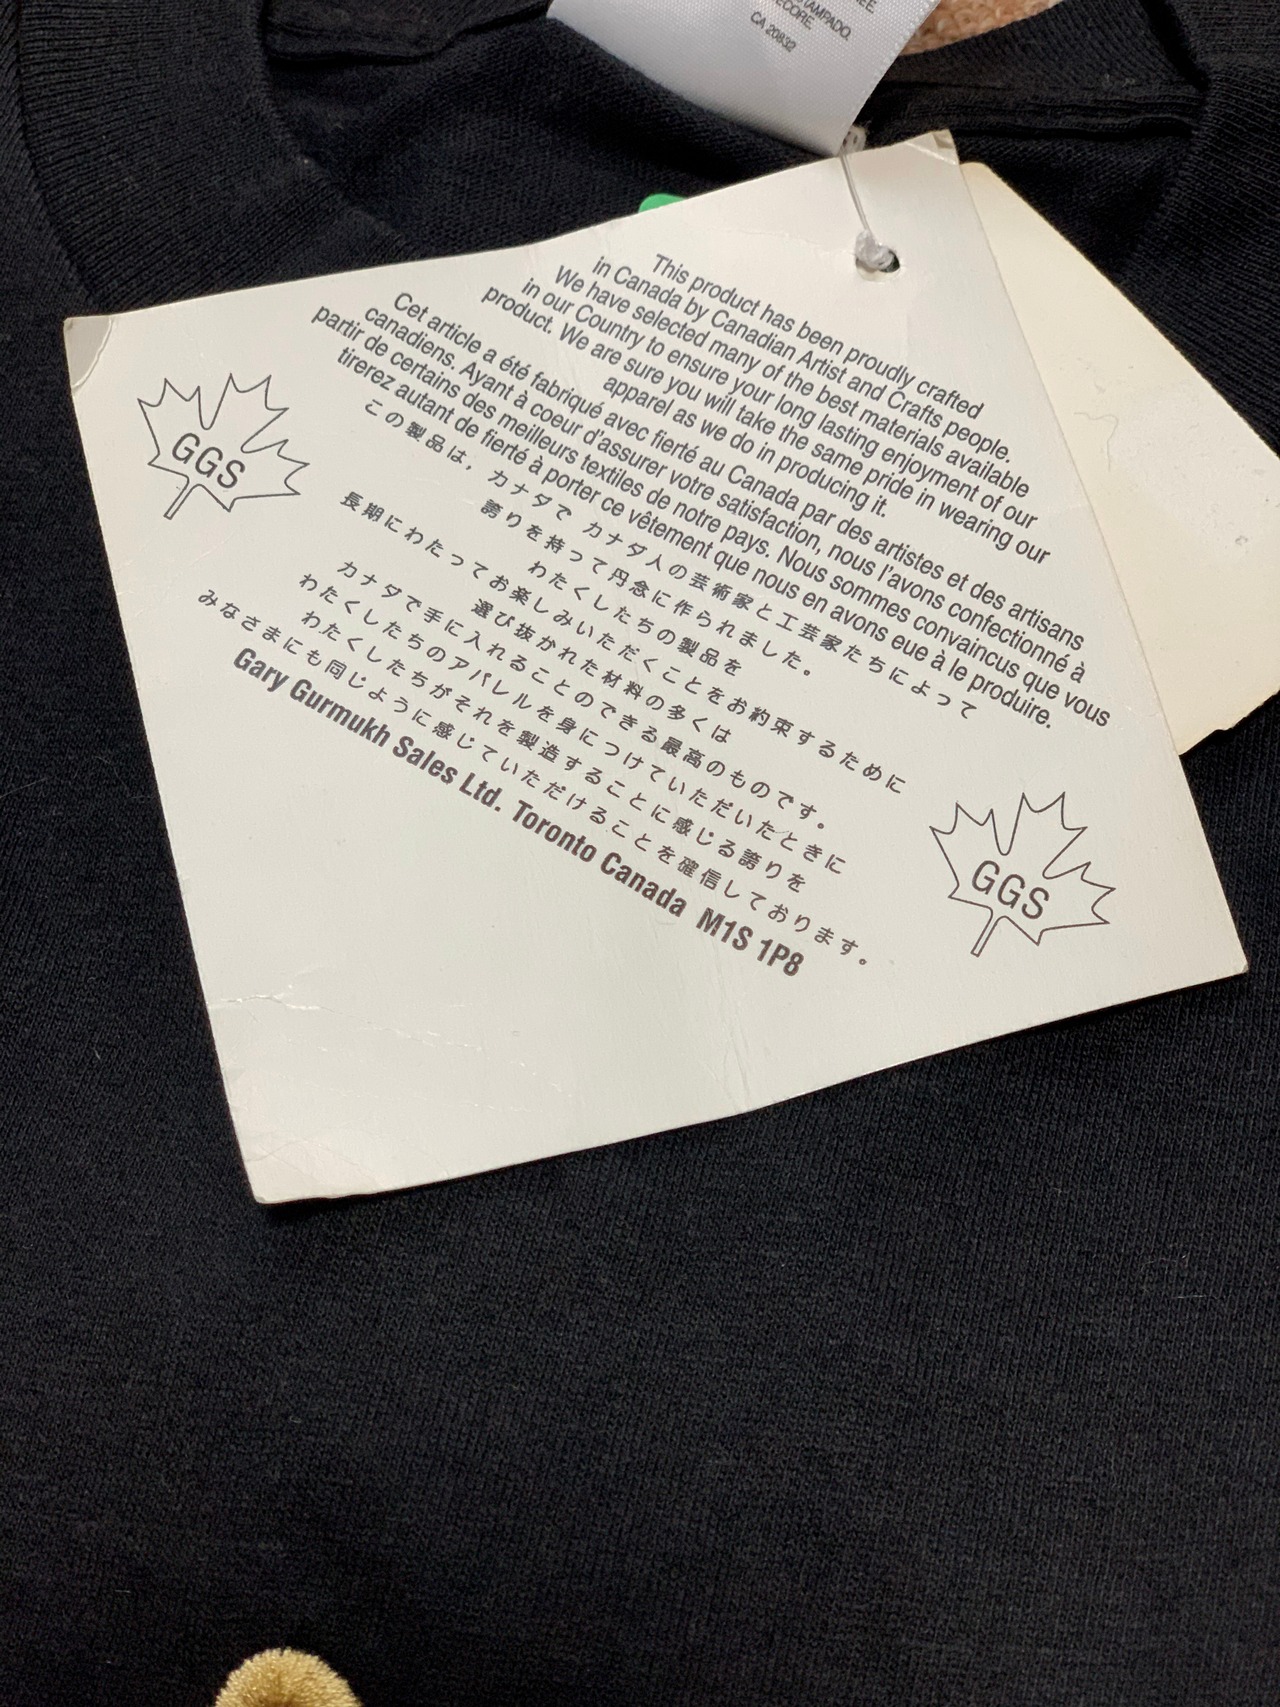 TAMPADO.
CA 20832
This product has been proudly crafted
in Canada by Canadian Artist and Crafts people.
We have selected many of the best materials available
in our Country to ensure your long lasting enjoyment of our
product. We are sure you will take the same pride in wearing our
apparel as we do in producing it.
Cet article a été fabriqué avec fierté au Canada par des artistes et des artisans
canadiens. Ayant à coeur d'assurer votre satisfaction, nous l'avons confectionné à
partir de certains des meilleurs textiles de notre pays. Nous sommes convaincus que vous
tirerez autant de fierté à porter ce vêtement que nous en avons eue à le produire.
この製品は, カナダで カナダ人の芸術家と工芸家たちによって
誇りを持って丹念に作られました。
わたくしたちの製品を
長期にわたってお楽しみいただくことをお約束するために
選び抜かれた材料の多くは
カナダで手に入れることのできる最高のものです。
わたくしたちのアパレルを身につけていただいたときに
わたくしたちがそれを製造することに感じる誇りを
みなさまにも同じように感じていただけることを確信しております。
Gary Gurmukh Sales Ltd. Toronto Canada M1S 1P8
GGS
GGS